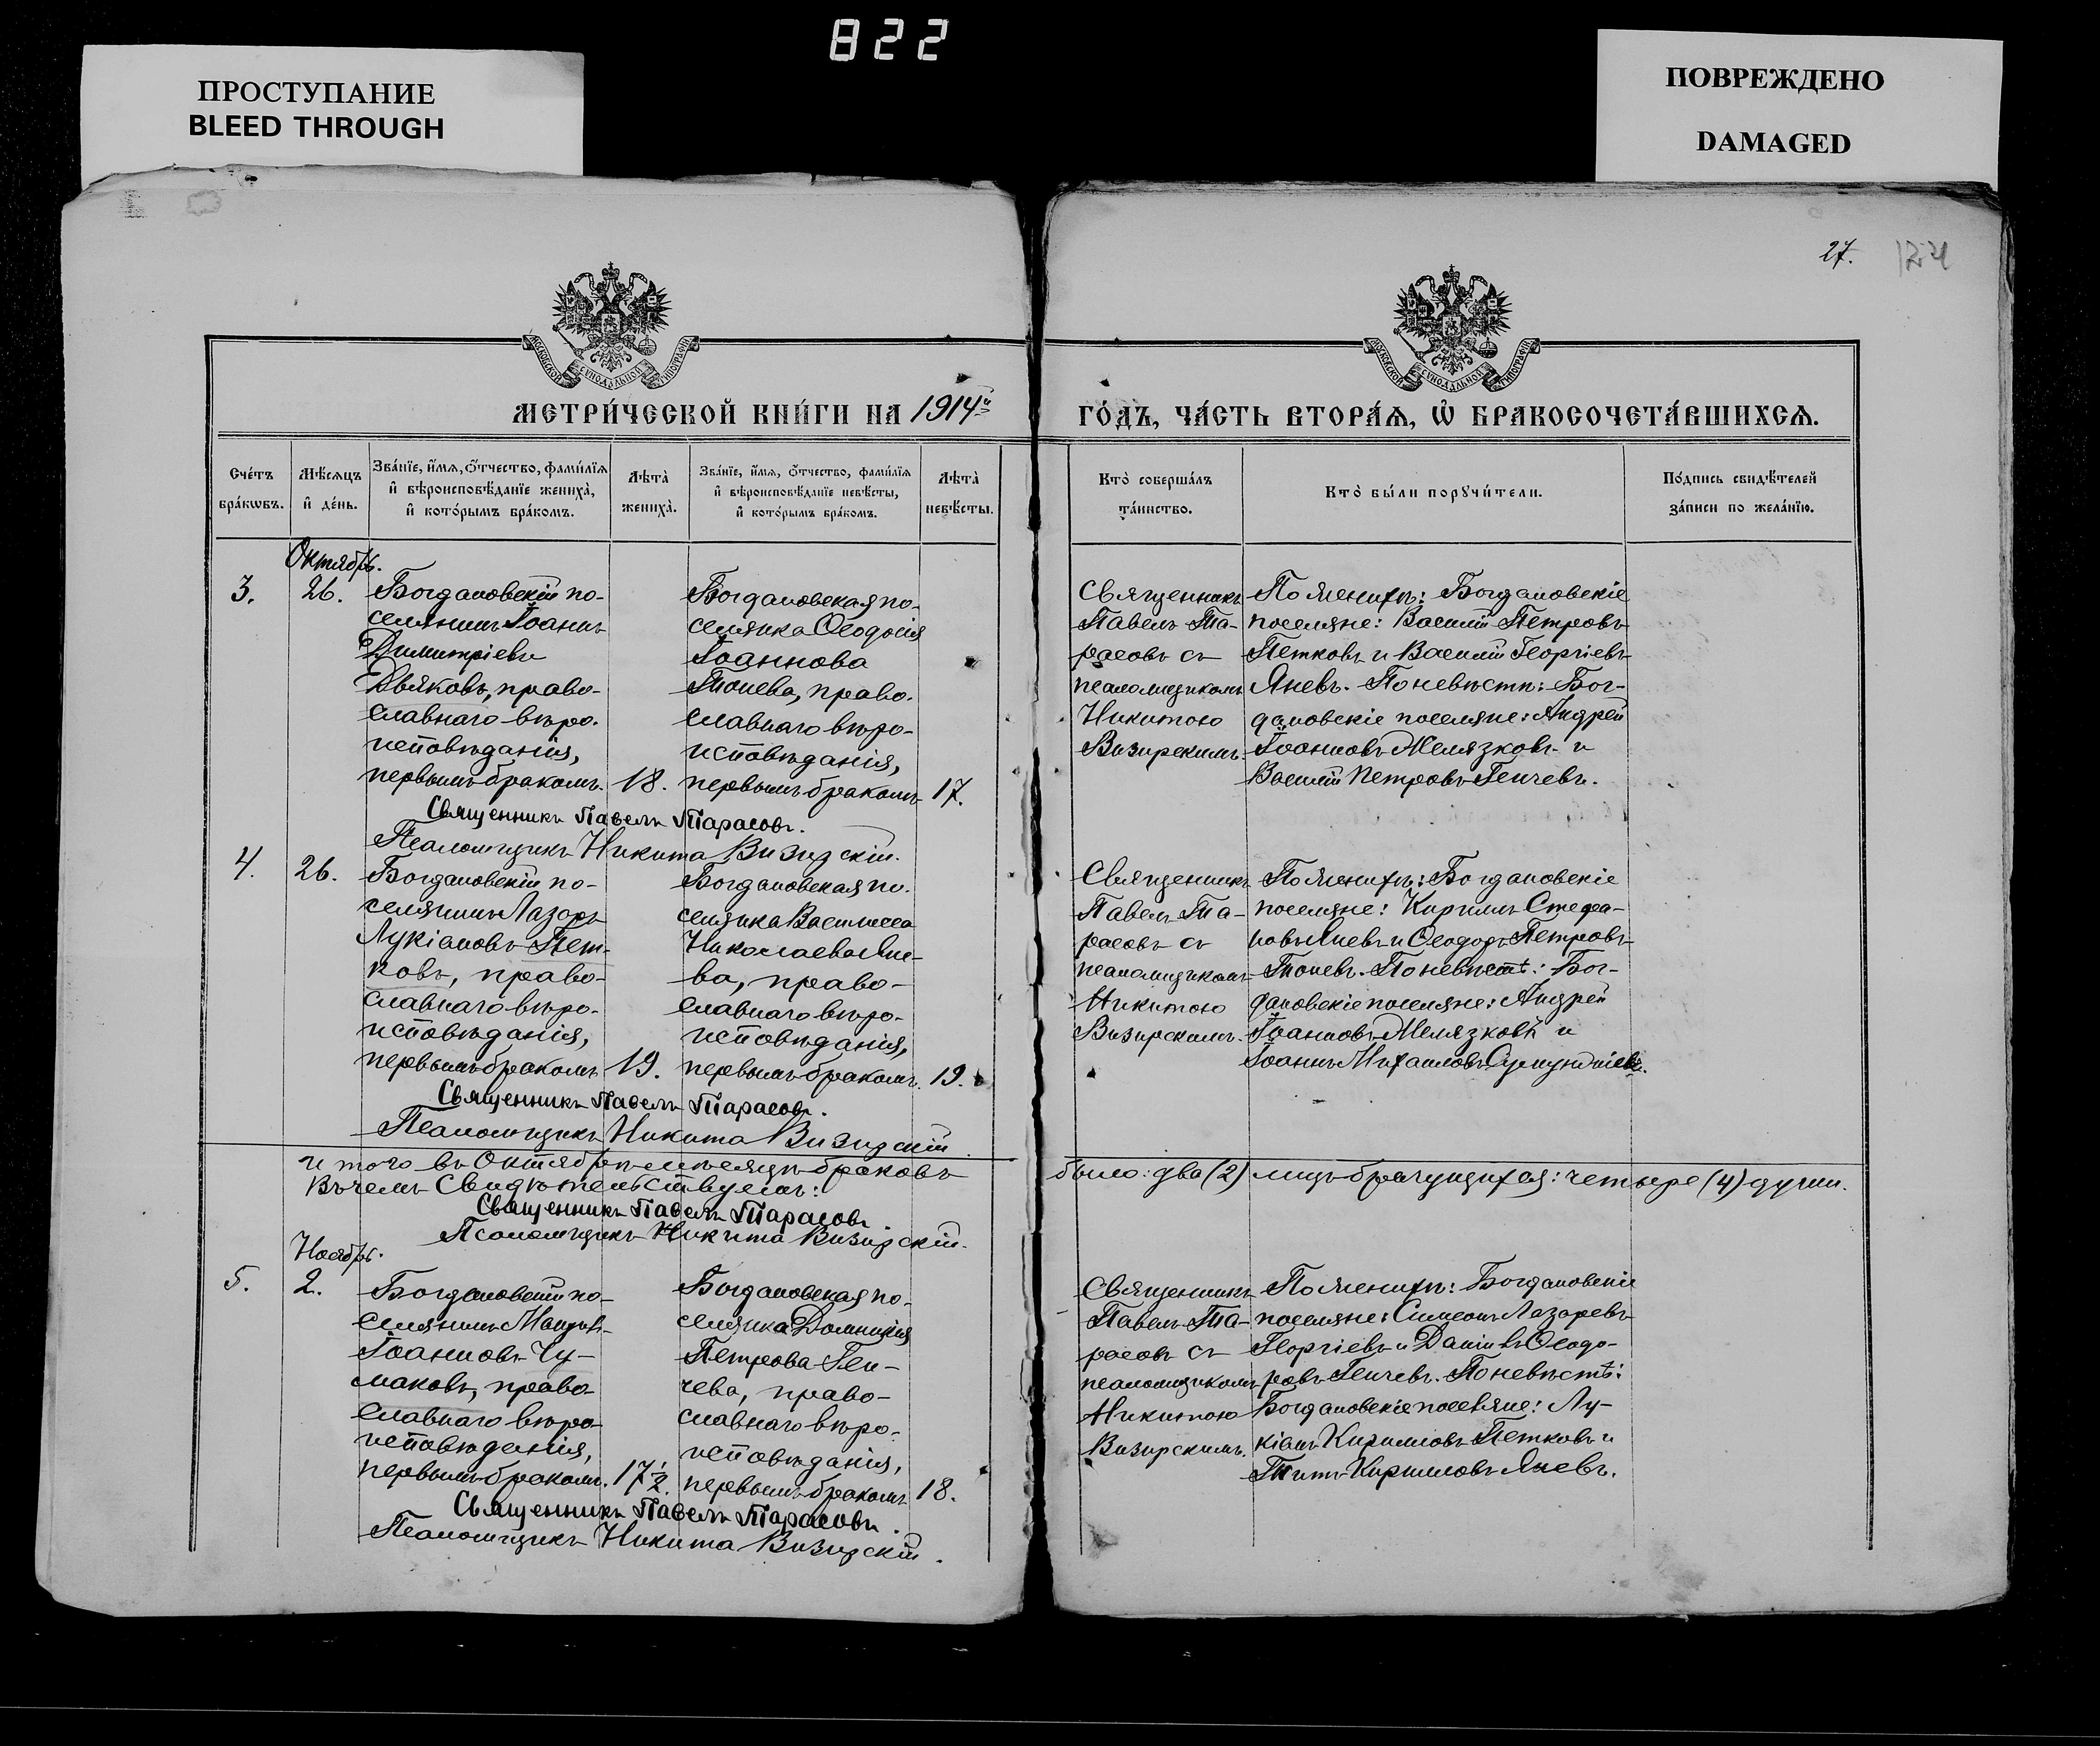 822
ПРОСТУПАНИЕ
BLEED THROUGH
ПОВРЕЖДЕНО
DAMAGED
27.
МОСКОВСКОЙ СѴНОДАЛЬНОЙ ТИПОГРАФІИ
МОСКОВСКОЙ СѴНОДАЛЬНОЙ ТИПОГРАФІИ
МЕТРИ́ЧЕСКОЙ КНИ́ГИ НА 1914й
ГО́ДЪ, ЧА́СТЬ ВТОРА́Я, Ѡ҆ БРАКОСОЧЕТА́ВШИХСЯ.
Сче́тъ
бра́кѡвъ.
Мѣ́сяцъ
и҆ де́нь.
Зва́нїе, и҆́мя, ѻ҆́тчество, фами́лїя
и҆ вѣроисповѣ́данїе жениха̀,
и҆ кото́рымъ бра́комъ.
Лѣта̀
жениха̀.
Зва́нїе, и҆́мя, ѻ҆́тчество, фами́лїя
и҆ вѣроисповѣ́данїе невѣ́сты,
и҆ кото́рымъ бра́комъ.
Лѣта̀
невѣ́сты.
Кто̀ соверша́лъ
та́инство.
Кто̀ бы́ли порꙋчи́тели.
По́дпись свидѣ́телей
за́писи по жела́нїю.
Октябрь.
3.
26.
Богдановскій по-
селянинъ Іоаннъ
Димитріевъ
Дьяковъ, право-
славнаго вѣро-
исповѣданія,
первымъ бракомъ.
18.
Богдановская по-
селянка Ѳеодосія
Іоаннова
Тонева, право-
славнаго вѣро-
исповѣданія,
первымъ бракомъ
17.
Священникъ
Павелъ Та-
расовъ съ
псаломщикомъ
Никитою
Визирскимъ.
По женихѣ: Богдановскіе
поселяне: Василій Петровъ
Петковъ и Василій Георгіевъ
Яневъ. По невѣстѣ: Бог-
дановскіе поселяне: Андрей
Іоанновъ Желязковъ и
Василій Петровъ Генчевъ.
Священникъ Павелъ Тарасовъ.
Псаломщикъ Никита Визирскій.
4.
26.
Богдановскій по-
селянинъ Лазарь
Лукіановъ Пет-
ковъ, право-
славнаго вѣро-
исповѣданія,
первымъ бракомъ
19.
Богдановская по-
селянка Василисса
Николаева Яне-
ва, право-
славнаго вѣро-
исповѣданія,
первымъ бракомъ.
19.
Священникъ
Павелъ Та-
расовъ съ
псаломщикомъ
Никитою
Визирскимъ.
По женихѣ: Богдановскіе
поселяне: Кириллъ Стефа-
новъ Яневъ и Ѳеодоръ Петровъ
Тоневъ. По невѣстѣ: Бог-
дановскіе поселяне: Андрей
Іоанновъ Желязковъ и
Іоаннъ Михаиловъ
Священникъ Павелъ Тарасовъ.
Псаломщикъ Никита Визирскій
Итого въ Октябрѣ мѣсяцѣ браковъ
было: два (2) лицъ брачущихся: четыре (4) души.
Въ чемъ Свидѣтельствуемъ:
Священникъ Павелъ Тарасовъ.
Псаломщикъ Никита Визирскій.
Ноябрь.
5.
2.
Богдановскій по-
селянинъ
Іоанновъ Чу-
маковъ, право-
славнаго вѣро-
исповѣданія,
первымъ бракомъ.
17½.
Богдановская по-
селянка Домникія
Петрова Ген-
чева, право-
славнаго вѣро-
исповѣданія,
первымъ бракомъ
18.
Священникъ
Павелъ Та-
расовъ съ
псаломщикомъ
Никитою
Визирскимъ.
По женихѣ: Богдановскіе
поселяне: Симеонъ Лазаревъ
Георгіевъ и Даніилъ Ѳеодо-
ровъ Генчевъ. По невѣстѣ:
Богдановскіе поселяне: Лу-
кіанъ Кирилловъ Петковъ и
Титъ Кирилловъ Яневъ.
Священникъ Павелъ Тарасовъ.
Псаломщикъ Никита Визирскій.